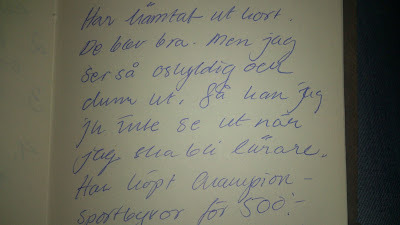 Har hämtat ut kort.
De blev bra. Men jag
ser så oskyldig och
dum ut. Så kan jag
ju inte se ut när
jag ska bli lärare.
Har köpt Champion-
sportbyxor för 500:-